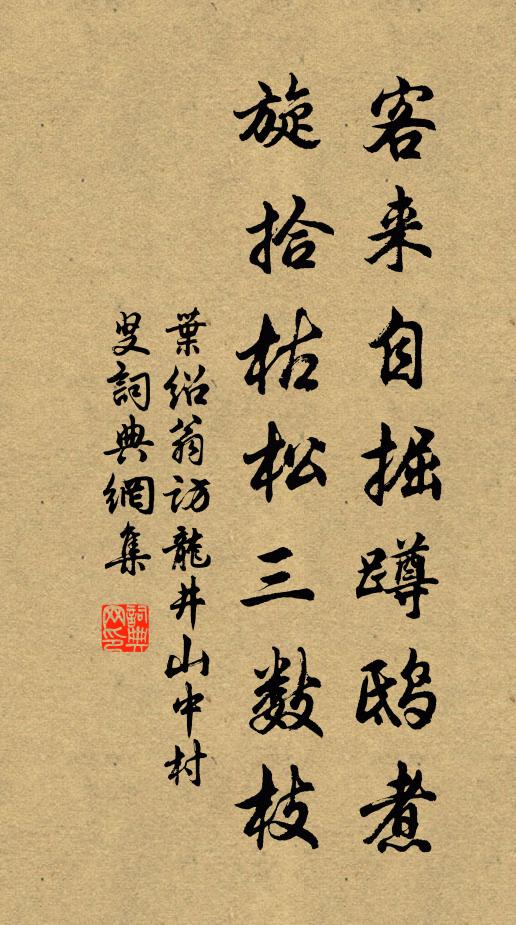 客来自掘蹲鸱煮
旋拾枯松三数枝
葉紹翁訪龍井山中村
叟詞典網集
詞典網印